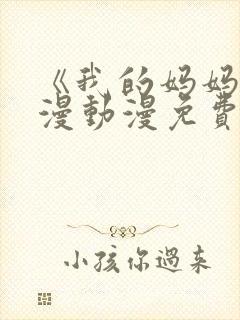 《我的妈妈
漫動漫免費
小孩你過来